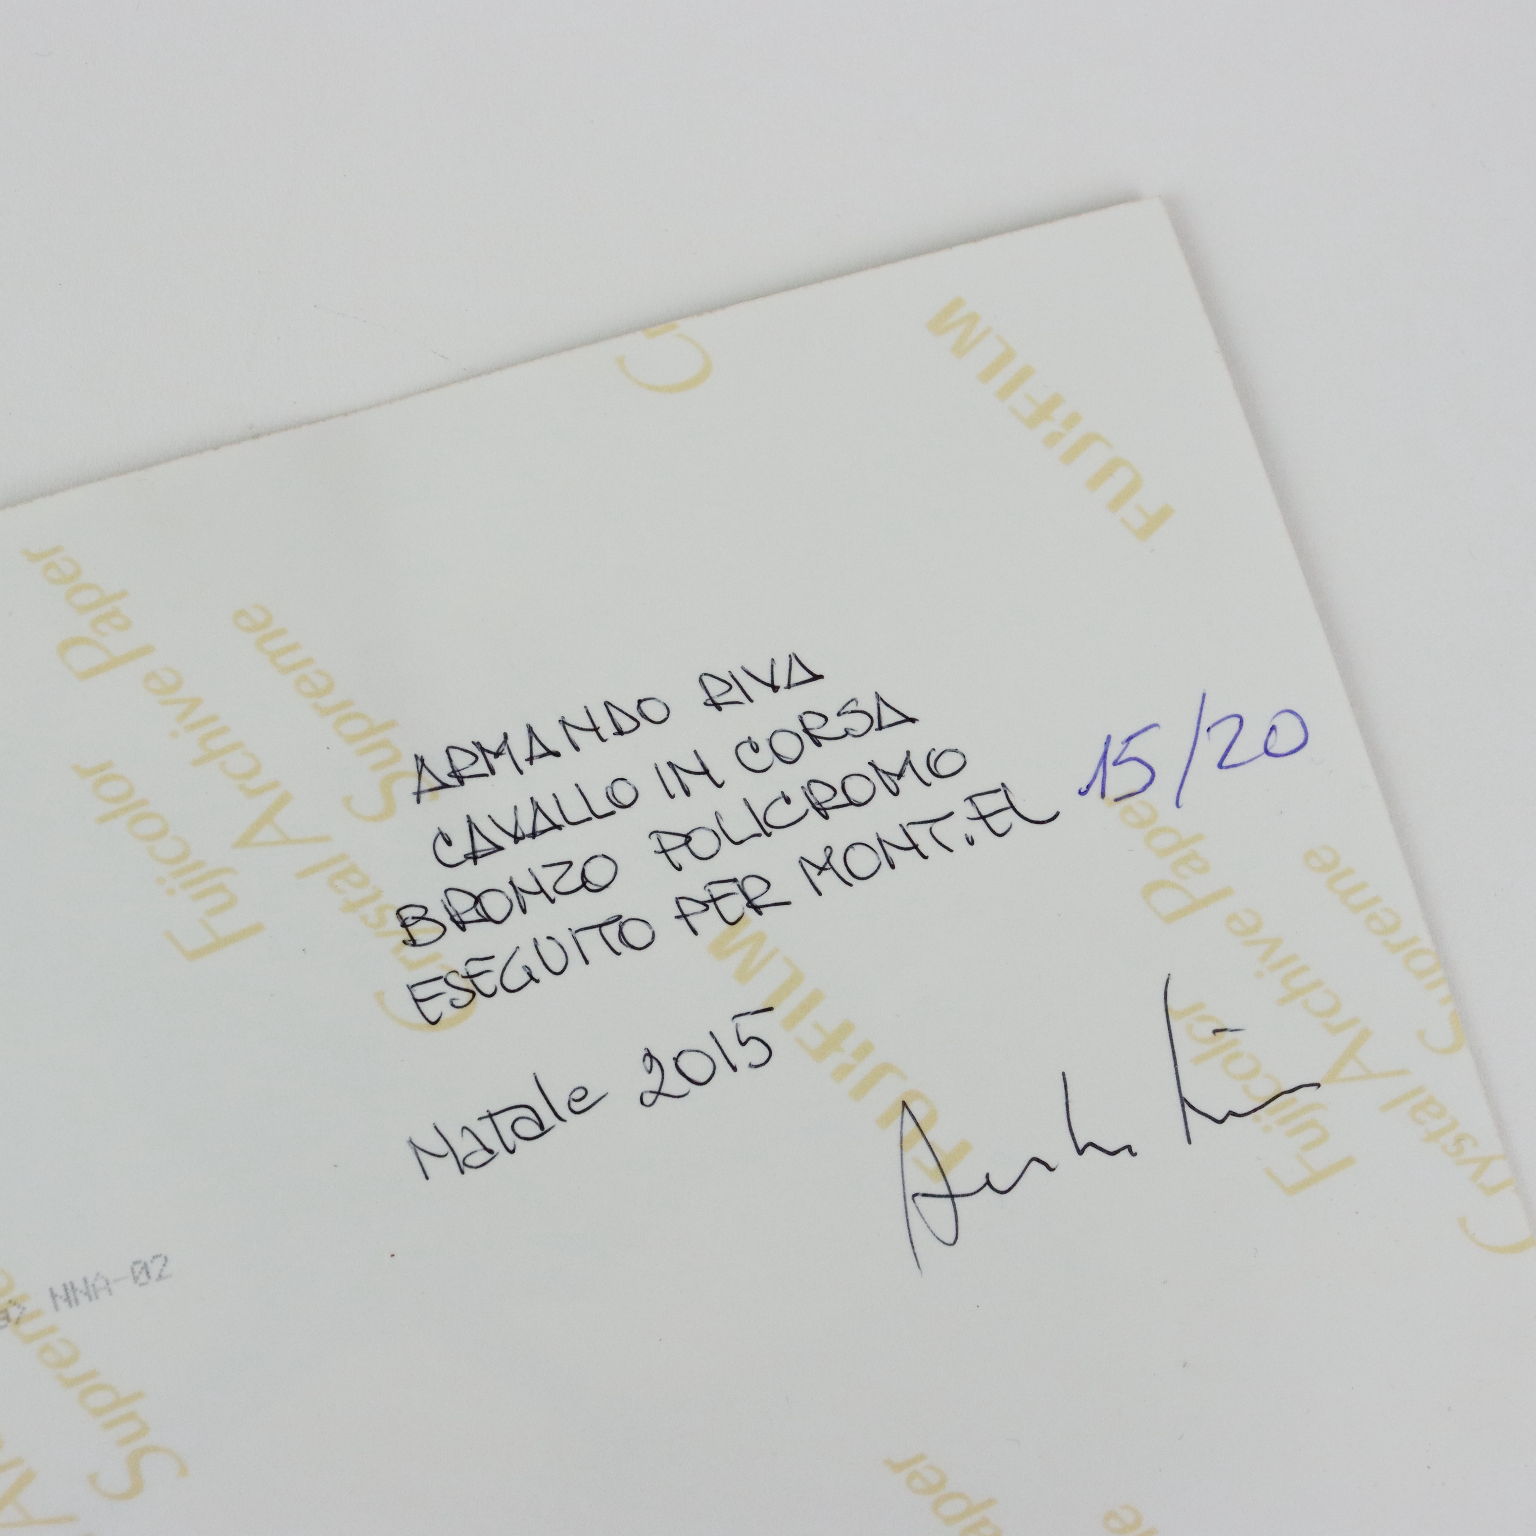 ARMANDO RIVA
CAVALLO IN CORSA
BRONZO POLICROMO
ESEGUITO PER MONT.EL 15/20
Natale 2015
FUJIFILM
Fujicolor
Crystal Archive Paper
Supreme
FUJIFILM
Fujicolor
Crystal Archive Paper
Supreme
NNA-02
Supreme